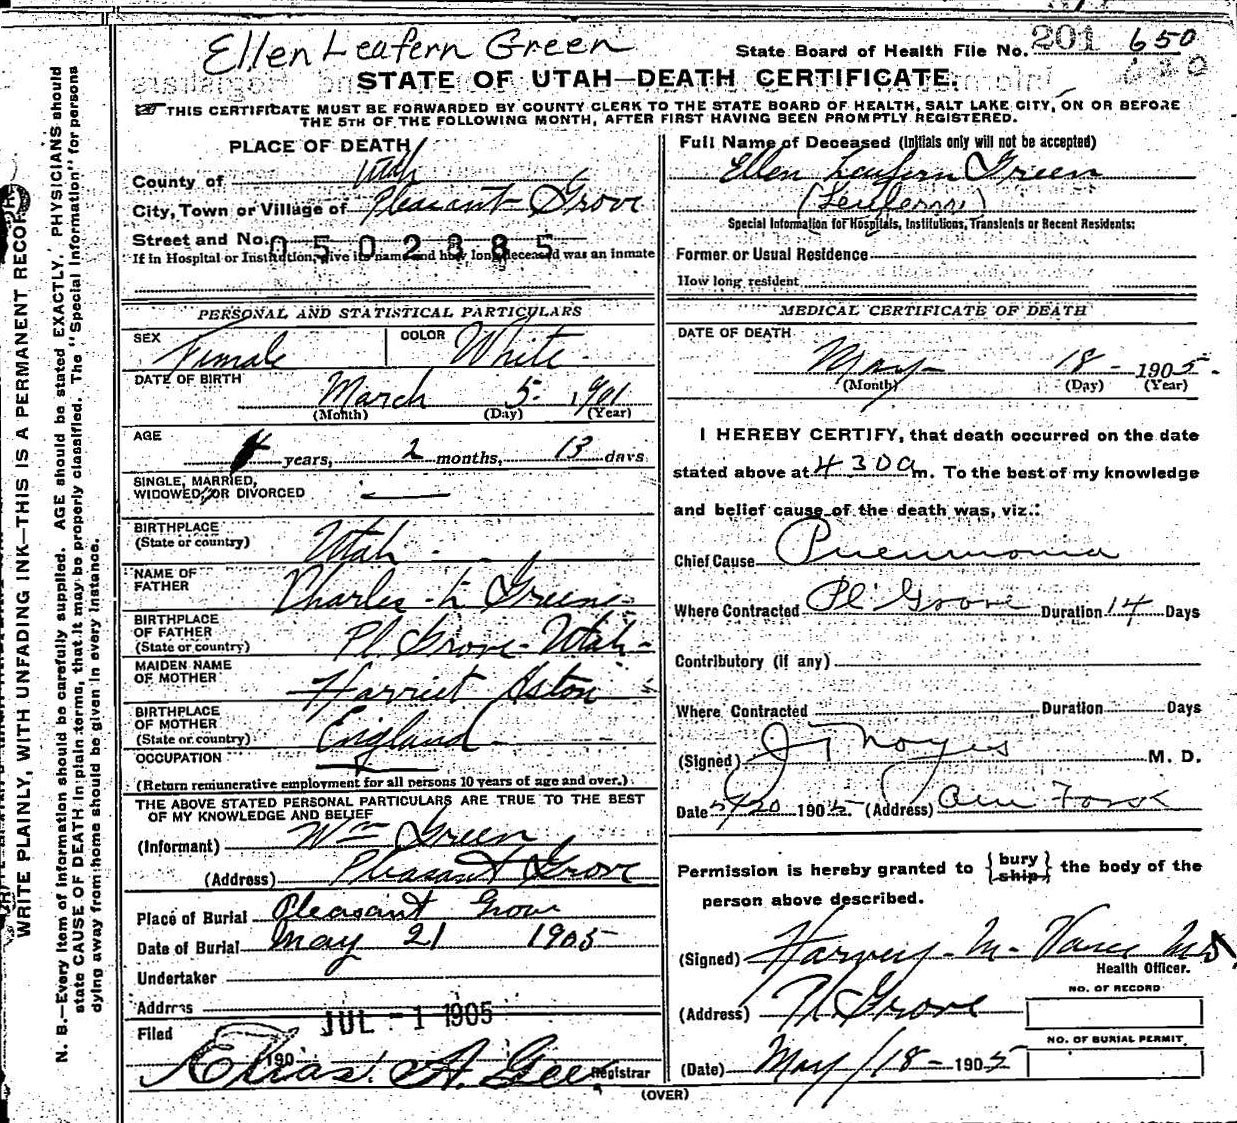 Ellen Leafern Green
State Board of Health File No. 201 650
STATE OF UTAH—DEATH CERTIFICATE.
THIS CERTIFICATE MUST BE FORWARDED BY COUNTY CLERK TO THE STATE BOARD OF HEALTH, SALT LAKE CITY, ON OR BEFORE
THE 5TH OF THE FOLLOWING MONTH, AFTER FIRST HAVING BEEN PROMPTLY REGISTERED.
PLACE OF DEATH
County of Utah
City, Town or Village of Pleasant Grove
Street and No.
0502885
If in Hospital or Institution, give its name and how long deceased was an inmate
PERSONAL AND STATISTICAL PARTICULARS
SEX Female COLOR White
DATE OF BIRTH
March 5 1901
(Month) (Day) (Year)
AGE
4 years, 2 months, 13 days
SINGLE, MARRIED,
WIDOWED, OR DIVORCED
BIRTHPLACE
(State or country) Utah
NAME OF
FATHER Charles L Greene
BIRTHPLACE
OF FATHER
(State or country) Pl. Grove - Utah -
MAIDEN NAME
OF MOTHER Harriet Aston
BIRTHPLACE
OF MOTHER
(State or country) England
OCCUPATION
(Return remunerative employment for all persons 10 years of age and over.)
THE ABOVE STATED PERSONAL PARTICULARS ARE TRUE TO THE BEST
OF MY KNOWLEDGE AND BELIEF
(Informant) Wm Green
(Address) Pleasant Grove
Place of Burial Pleasant Grove
Date of Burial May 21 1905
Undertaker
Address
Filed JUL - 1 1905
190
Elias A. Gee Registrar
Full Name of Deceased (Initials only will not be accepted)
Ellen Leafern Green
(Leafern)
Special Information for Hospitals, Institutions, Transients or Recent Residents:
Former or Usual Residence
How long resident
MEDICAL CERTIFICATE OF DEATH
DATE OF DEATH
May - 18 - 1905.
(Month) (Day) (Year)
I HEREBY CERTIFY, that death occurred on the date
stated above at 4 30 a m. To the best of my knowledge
and belief cause of the death was, viz.:
Chief Cause Pneumonia
Where Contracted Pl Grove Duration 14 Days
Contributory (if any)
Where Contracted Duration Days
(Signed) J T Noyes M. D.
Date 5/20 1905. (Address) Am Fork
Permission is hereby granted to {bury ship} the body of the
person above described.
(Signed) Harvey M. Vance MD
Health Officer.
(Address) Pl Grove
NO. OF RECORD
NO. OF BURIAL PERMIT.
(Date) May / 18 - 1905
(OVER)
WRITE PLAINLY, WITH UNFADING INK—THIS IS A PERMANENT RECORD
N. B.—Every item of information should be carefully supplied. AGE should be stated EXACTLY. PHYSICIANS should
state CAUSE OF DEATH in plain terms, that it may be properly classified. The "Special Information" for persons
dying away from home should be given in every instance.